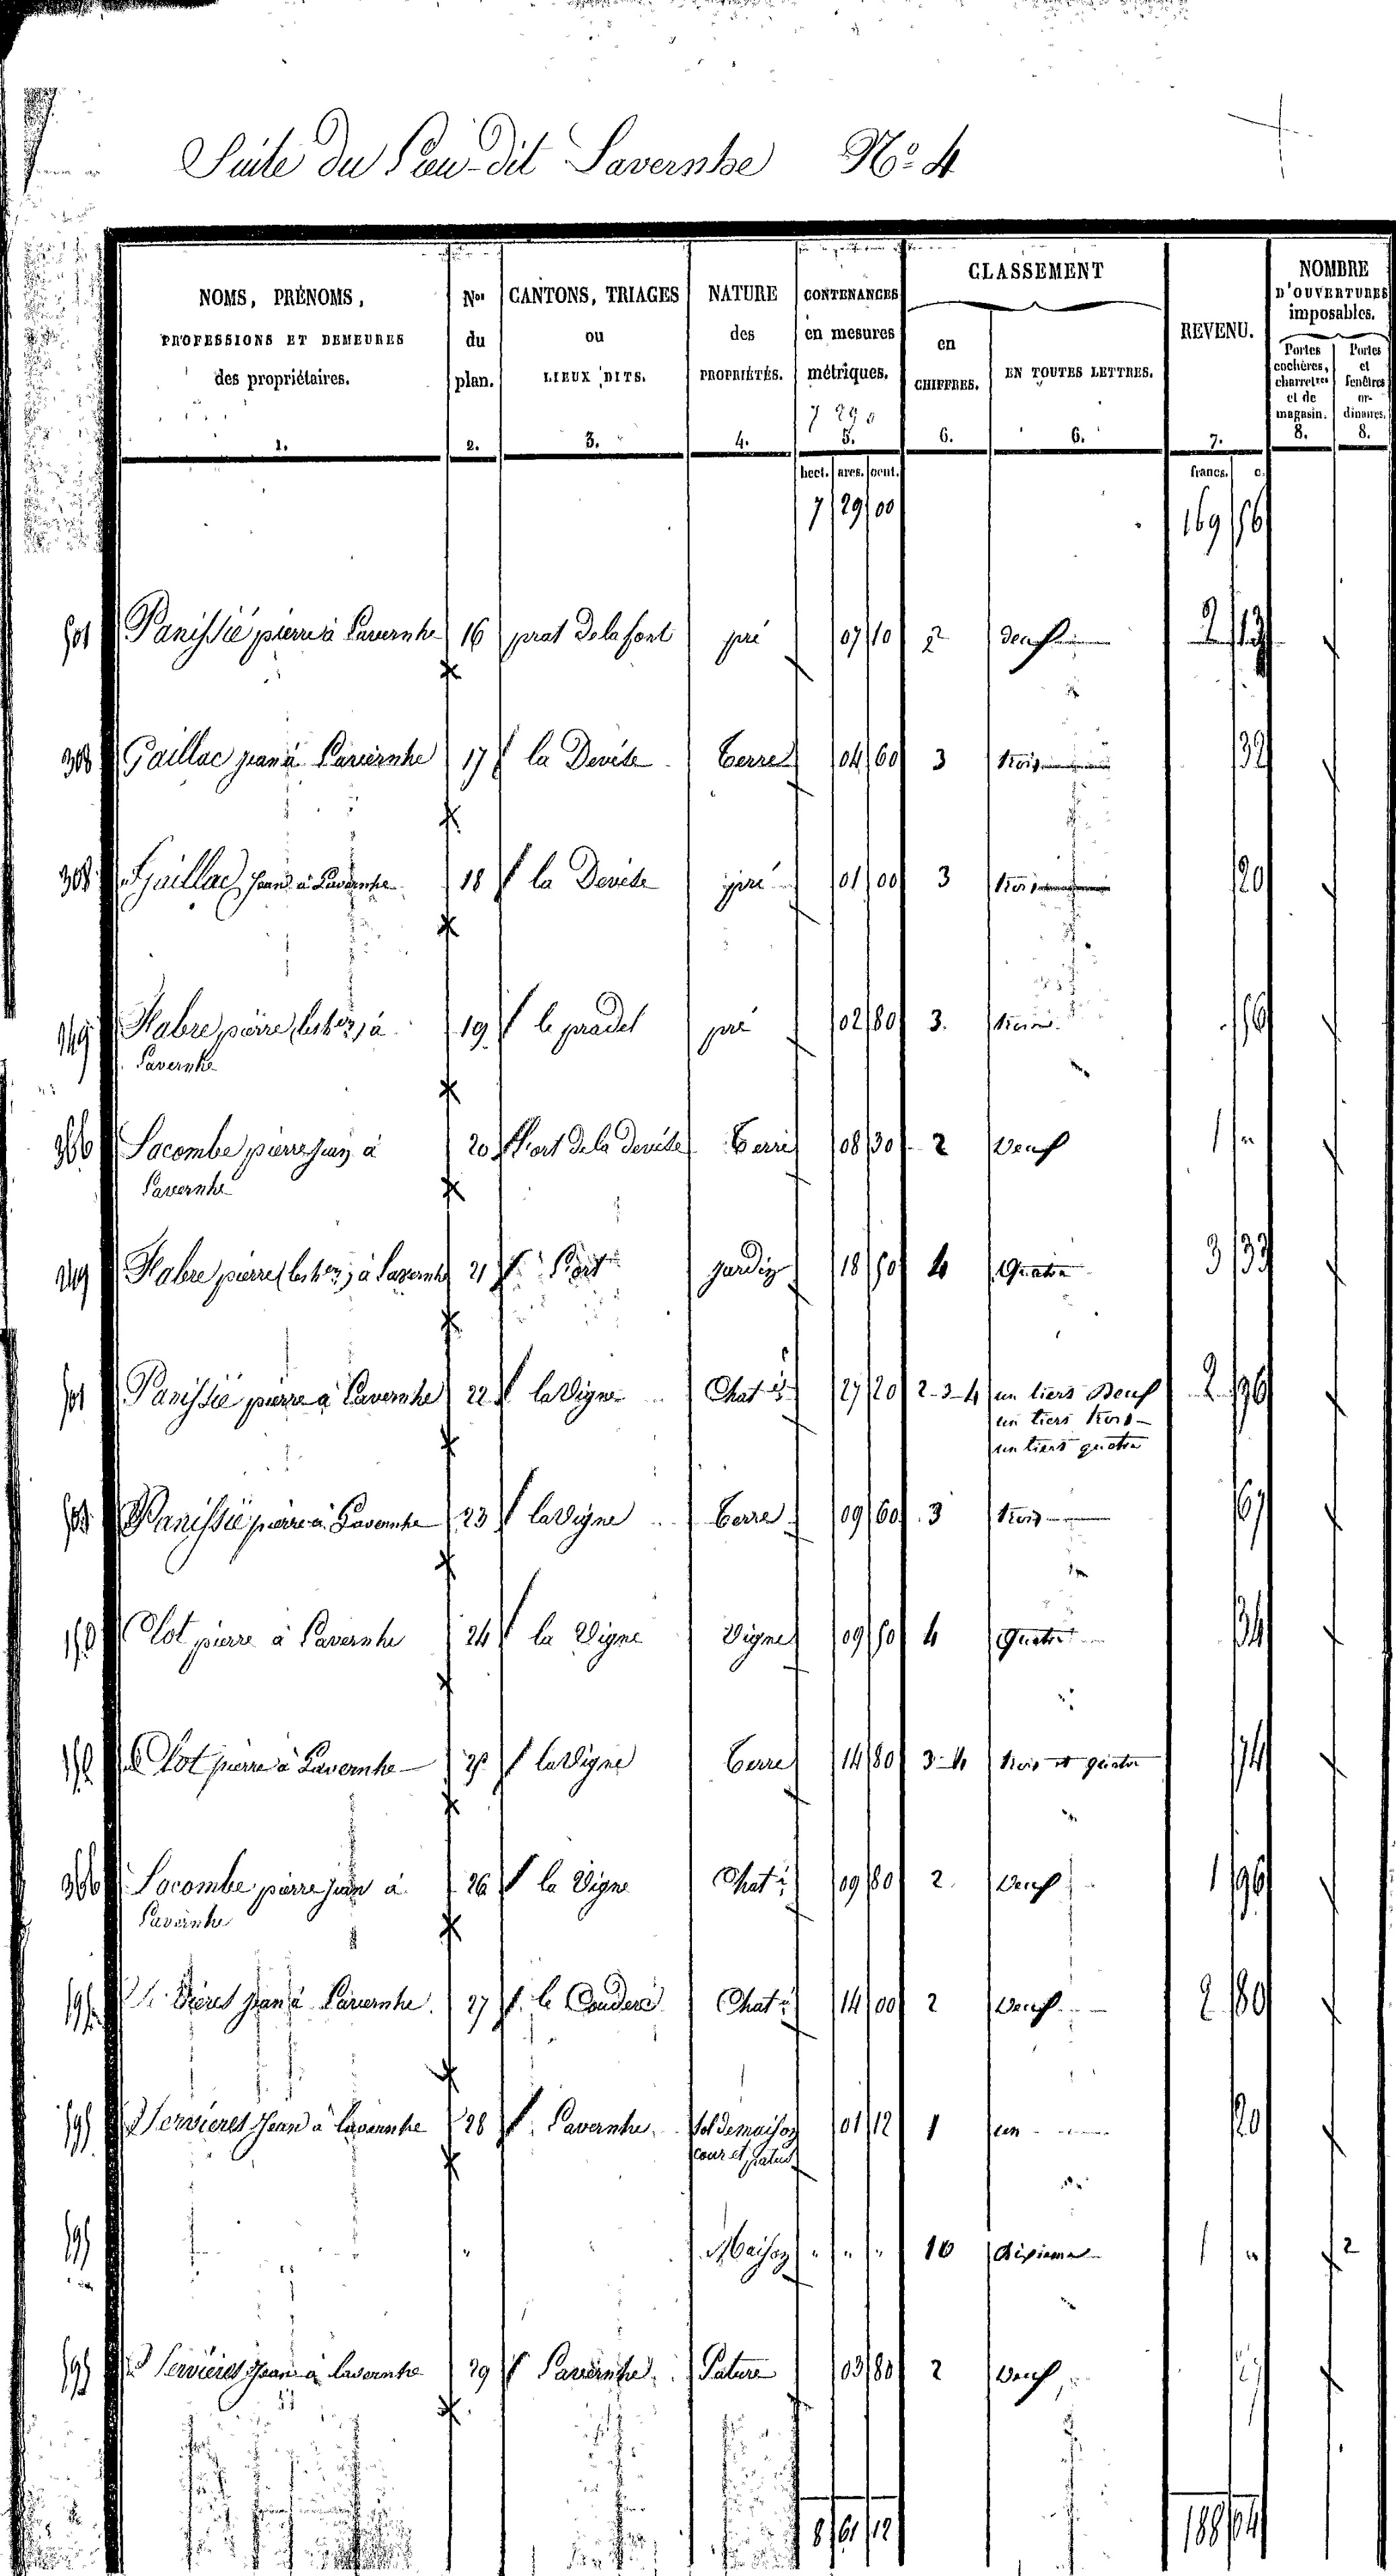 Suite du Lieu-dit Lavernhe No. 4
NOMS, PRÉNOMS, PROFESSIONS ET DEMEURES des propriétaires. 1.
Nos du plan. 2.
CANTONS, TRIAGES ou LIEUX DITS. 3.
NATURE des PROPRIÉTÉS. 4.
CONTENANCES en mesures métriques. 5.
CLASSEMENT
en CHIFFRES. 6.
EN TOUTES LETTRES. 6.
REVENU. 7.
NOMBRE D'OUVERTURES imposables.
Portes cochères, charretres et de magasin. 8.
Portes et fenêtres ordinaires, 8.
hect. ares. cent. francs. c.
7 29 00 169 56
501 Panissié pierre à Lavernhe 16 prat de la font pré 07 10 2 deux 2 13
308 Gaillac jean à Lavernhe 17 la Devèze Terre 04 60 3 trois 32
308 Gaillac jean à Lavernhe 18 la Devèze pré 01 00 3 trois 20
249 Fabre pierre à 19 le pradel pré 02 80 3. trois 56
Lavernhe
366 Lacombe pierre jean à 20 Terre 08 30 2 Deux 1 "
Lavernhe
249 Fabre pierre à Lavernhe 21 jardin 18 50 4 Quatre 3 33
501 Panissié pierre à Lavernhe 22 la Vigne Chat. 27 20 2-3-4 un tiers Deux 2 96
un tiers trois
un tiers quatre
Panissié pierre à Lavernhe 23 la Vigne Terre 09 60 3 trois 67
Clot pierre à Lavernhe 24 la Vigne Vigne 09 50 4 Quatre 34
Clot pierre à Lavernhe 25 la Vigne Terre 14 80 3-4 trois et quatre 74
366 Lacombe pierre jean à 26 la Vigne Chat. 09 80 2. Deux 1 96
Lavernhe
595 jean à Lavernhe 27 le Couderc Chat. 14 00 2 Deux 2 80
595 Servieres jean à Lavernhe 28 Lavernhe Sol de maison 01 12 1 un 20
cour et patus
595 " Maison " " " 10 dixieme 1 " 2
595 Servieres jean à Lavernhe 29 Lavernhe Pature 03 80 2 Deux
8 61 12 188 04